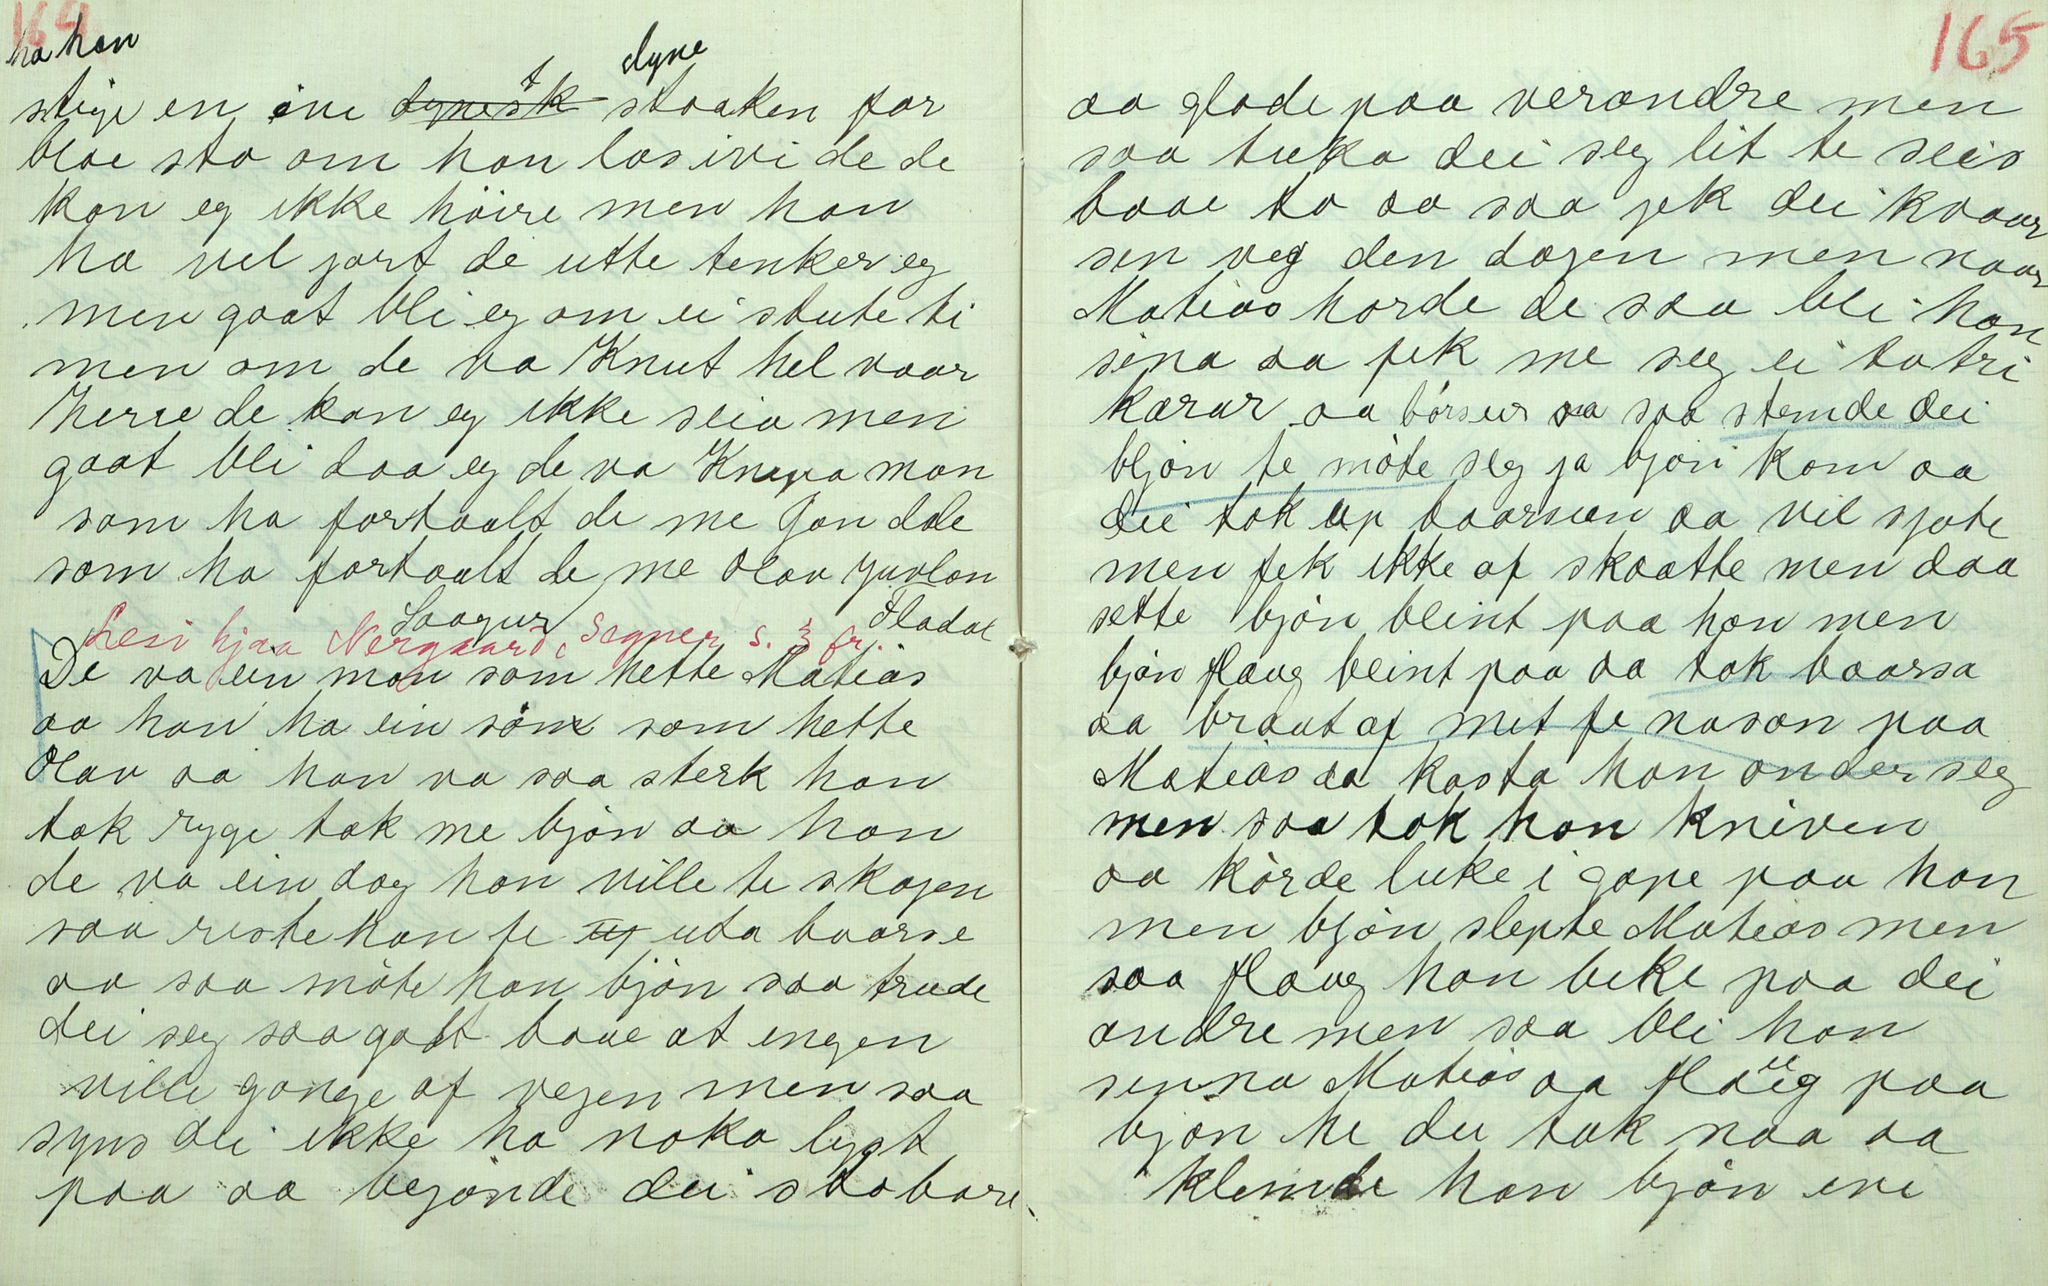 164
ha han
dyne
stige en ive dynestk staaken for
bloe sto om han las ivi de de
kan eg ikke höire men han
ha vel jort de utte tenker eg
men gaat bli eg om ei stute ti
men om de va Knut hel vaar
herre de kan eg ikke seia men
gaat bli daa eg de va Knepa man
som ha fortaalt de me Jon dde
som ha fortaalt de me Olav Juvlon
Fladat
Saagur
Lesi hjaa Nergaard, Segner s. fr.
De va ein man som hette Matias
aa han ha ein sön som hette
Olav aa han va saa sterk han
tok ryge tak me bjön aa han
de va ein dag han ville te skogen
saa reste han te uta baarse
aa saa möte han bjön saa trude
dei seg saa godt baae at engen
ville gonge af vegen men saa
syns dei ikke ha noka lyst
paa aa begjönde dei sto bare
165
aa glode paa verandre men
saa tuka dei seg lit te seis
baae to aa saa jek dei kvaar
sen veg den dagen men naar
Matias horde de saa blei han
sina aa fek me seg ei to tri
karar aa börseur aa saa stemde dei
bjön te möte seg ja bjön kom aa
dei tok up baarseen aa vil sjote
men fek ikke af skaatte men daa
sette bjön bleint paa han men
bjön flaug bleint paa aa tok baarsa
aa braut af mit fe nason paa
Matias aa kasta han onder seg
men saa tok han kniven
aa körde luke i gape paa han
men bjön slepte Matias men
saa flaug han beke paa dei
andre men saa blei han
senna Matias aa flaug paa
bjön he dei tok naa aa
klemde han bjön eve